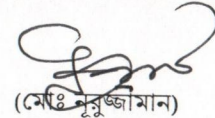 (মোঃ নূরুজ্জামান)